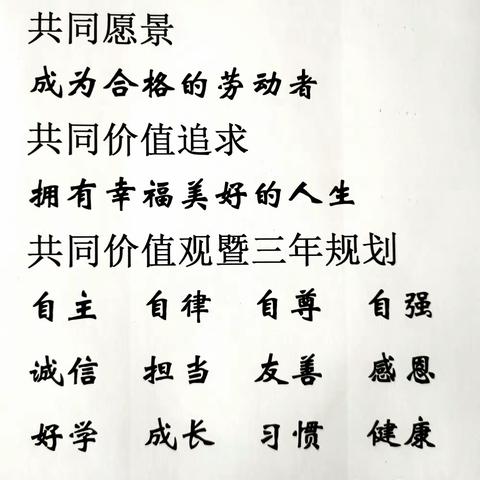 共同愿景
成为合格的劳动者
共同价值追求
拥有幸福美好的人生
共同价值观暨三年规划
自主 自律 自尊 自强
诚信 担当 友善 感恩
好学 成长 习惯 健康